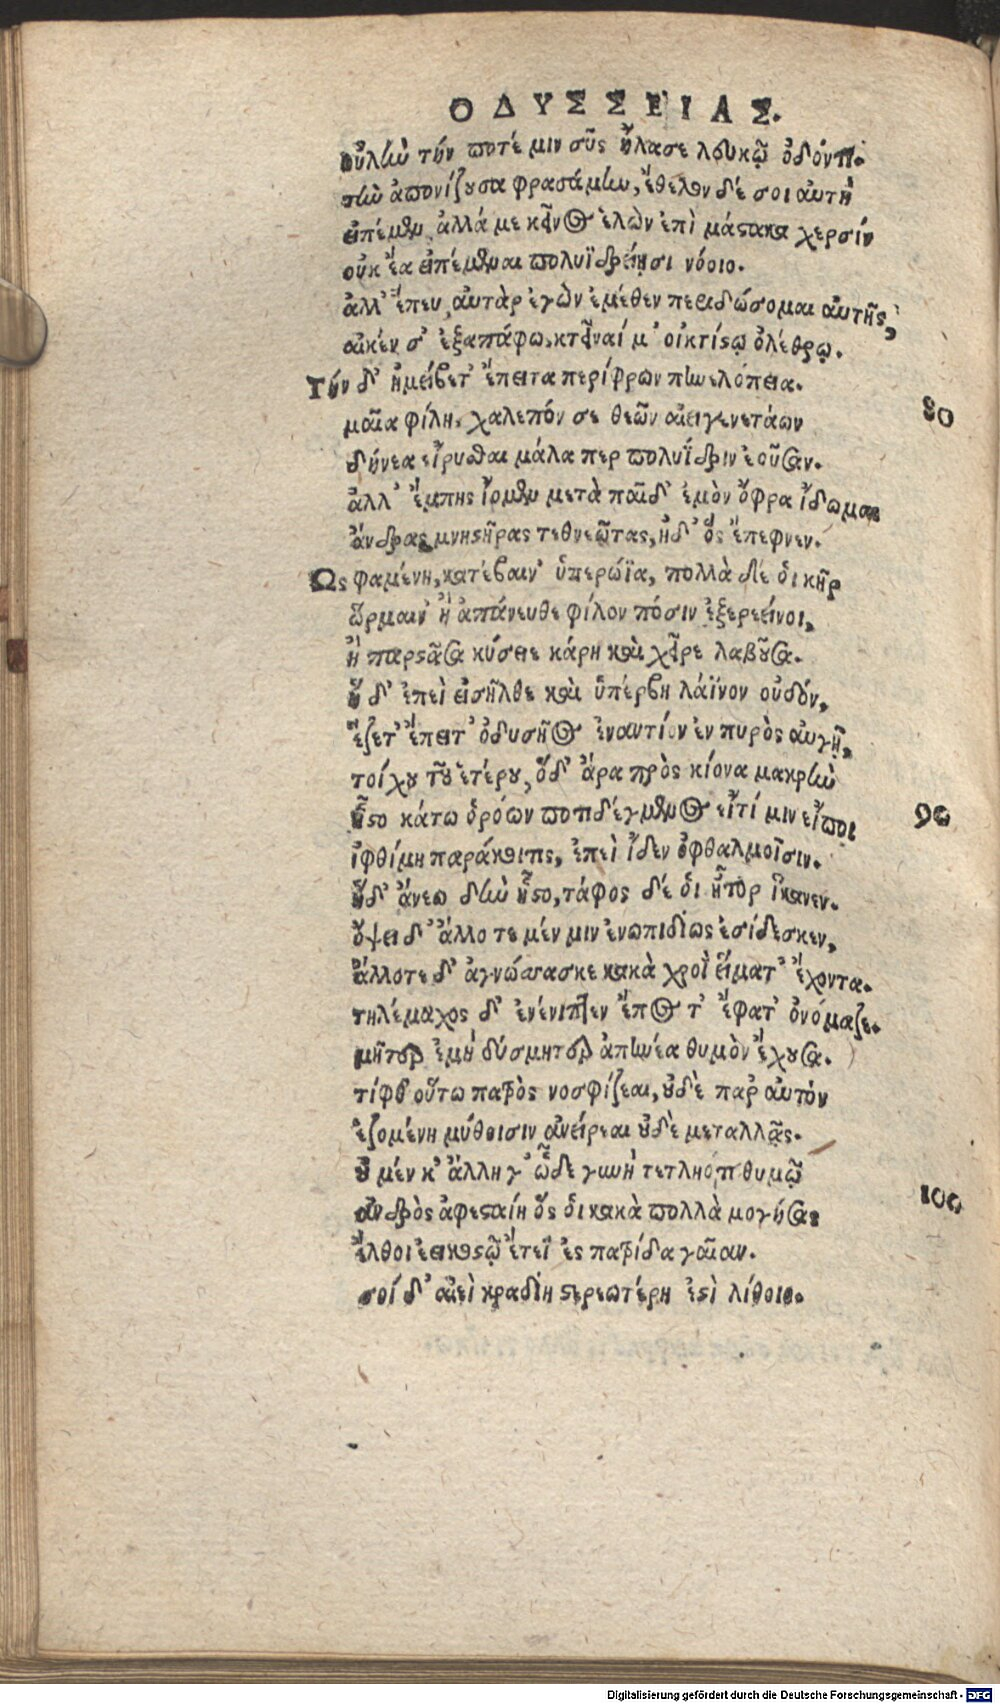 ΟΔΥΣΣΕΙΑΣ.
οὐλὴν τήν ποτέ μιν σῦς ἤλασε λευκῷ ὀδόντι.
τὴν ἀπονίζουσα φρασάμην, ἔθελον δέ σοι αὐτῇ
εἰπέμεν, ἀλλά με κεῖνος ἑλὼν ἐπὶ μάστακα χερσίν
οὐκ ἔα εἰπέμεναι πολυϊδρείῃσι νόοιο.
ἀλλ' ἕπευ, αὐτὰρ ἐγὼν ἐμέθεν περιδώσομαι αὐτῆς,
αἴκέν σ' ἐξαπάφω, κτεῖναί μ' οἰκτίστῳ ὀλέθρῳ.
Τήν δ' ἠμείβετ' ἔπειτα περίφρων πηνελόπεια.
80
μαῖα φίλη, χαλεπόν σε θεῶν αἰειγενετάων
δήνεα εἴρυσθαι μάλα περ πολυΐδριν ἐοῦσαν.
ἀλλ' ἔμπης ἴομεν μετὰ παῖδ' ἐμὸν ὄφρα ἴδωμαι
ἄνδρας μνηστῆρας τεθνεῶτας, ἠδ' ὅς ἔπεφνεν.
Ως φαμένη, κατέβαιν' ὑπερώϊα, πολλὰ δέ οἱ κῆρ
ὥρμαιν' ἢ ἀπάνευθε φίλον πόσιν ἐξερεείνοι,
ἢ παρστᾶσα κύσειε κάρη καὶ χεῖρε λαβοῦσα.
ἥ δ' ἐπεὶ εἰσῆλθε καὶ ὑπέρβη λάϊνον οὐδόν,
ἕζετ' ἔπειτ' ὀδυσῆος ἐναντίον ἐν πυρὸς αὐγῇ,
τοίχου τοῦ ἑτέρου, ὅδ' ἄρα πρὸς κίονα μακρὴν
90
ἧστο κάτω ὁρόων ποτιδέγμενος εἴτί μιν εἴποι
ἰφθίμη παράκοιτις, ἐπεὶ ἴδεν ὀφθαλμοῖσιν.
ἥδ' ἄνεω δὴν ἧστο, τάφος δέ οἱ ἦτορ ἵκανεν.
ὄψει δ' ἄλλοτε μέν μιν ἐνωπιδίως ἐσίδεσκεν,
ἄλλοτε δ' ἀγνώσασκε κακὰ χροῒ εἵματ' ἔχοντα.
τηλέμαχος δ' ἐνένιπτεν ἔπος τ' ἔφατ' ὀνόμαζε.
μῆτερ ἐμὴ δύσμητερ ἀπηνέα θυμὸν ἔχουσα.
τίφθ' οὕτω πατρὸς νοσφίζεαι, οὐδὲ παρ' αὐτὸν
ἑζομένη μύθοισιν ἀνείρεαι οὐδὲ μεταλλᾷς.
οὐ μέν κ' ἄλλη γ' ὧδε γυνὴ τετληότι θυμῷ
100
ἀνδρὸς ἀφεσταίη ὅς οἱ κακὰ πολλὰ μογήσας
ἔλθοι ἐεικοστῷ ἔτεϊ ἐς πατρίδα γαῖαν.
σοί δ' αἰεὶ κραδίη στερεωτέρη ἐστὶ λίθοιο.
Digitalisierung gefördert durch die Deutsche Forschungsgemeinschaft - DFG